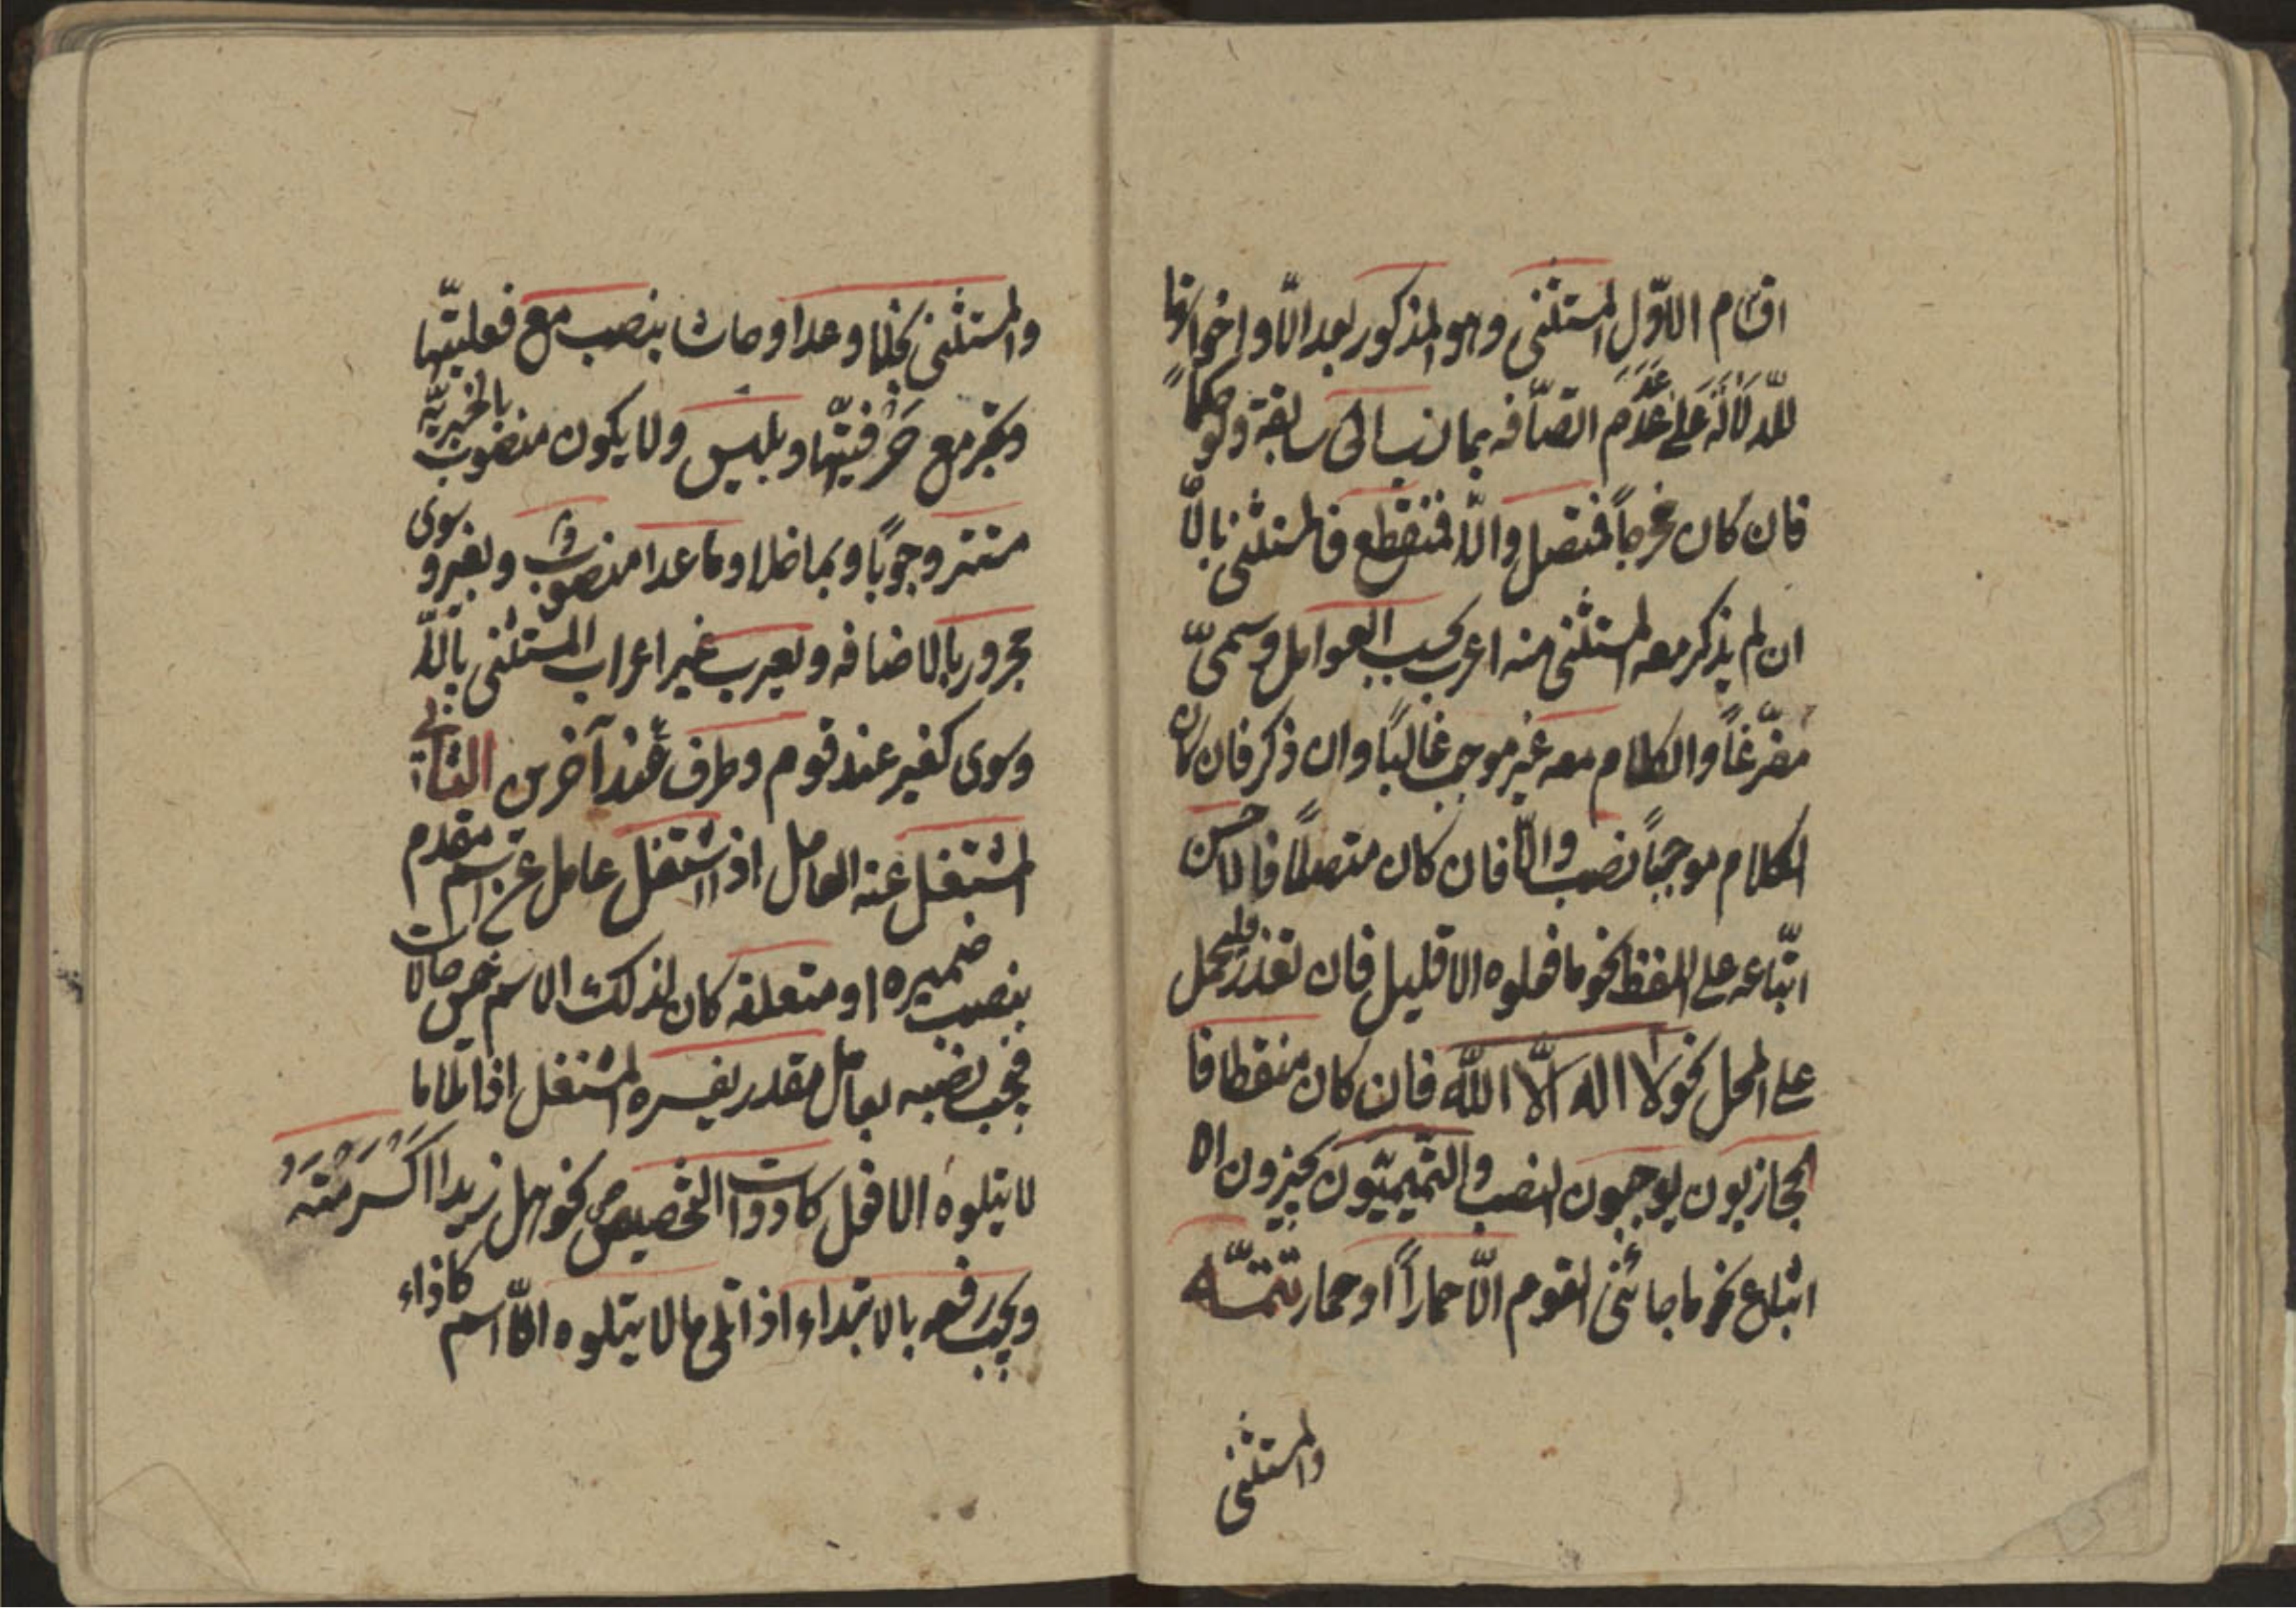 اقسام الاوّل المستثنى وهو المذكور بعد الاّ واخواتها
للدلالة على عدم اتصافه بما نسب الى سابقه ولو حكماً
فان كان مخرجاً فمتصل والّا فمنقطع فالمستثنى بالّا
ان لم يذكر معه المستثنى منه اعرب بحسب العوامل وسمّى
مفرّغاً والكلام معه غير موجب غالباً وان ذكر فان كان
الكلام موجباً نصب والّا فان كان متصلاً فالاحسن
اتّباعه على اللفظ نحو ما فعلوه الا قليل فان تعذر فيحمل
على المحل نحو لا اله الّا اللّه فان كان منقطعا فا
لحجازيون يوجبون النصب والتميميّون يجيزون الا
اتباع نحو ما جائنى القوم الّا حماراً او حمار تتمّة
والمستثنى
والمستثنى بخلا وعدا وحاشا ينصب مع فعليتّها
ويجّر مع حرفيتّها وبليس ولا يكون منصوب بالخبريّه
مستتر وجوباً وبما خلا وما عدا منصوب وبغير وسوى
مجرور بالاضافه ويعرب غير اعراب المستثنى بالّا
وسوى كغير عند قوم وظرف عند آخرين الثانى
المشتغل عنه العامل اذ اشتغل عامل عن اسم متقدم
بنصب ضميره او متعلقه كان لذلك الاسم خمس حالات
فيجب نصبه بعامل مقدر يفسره المشتغل اذا تلا ما
لا يتلوه الا فعل كادوات التخصيص نحو هل زيدا اكرمته
ويجب رفعه بالابتداء اذا تلى ما لا يتلوه الّا اسم كاذاء